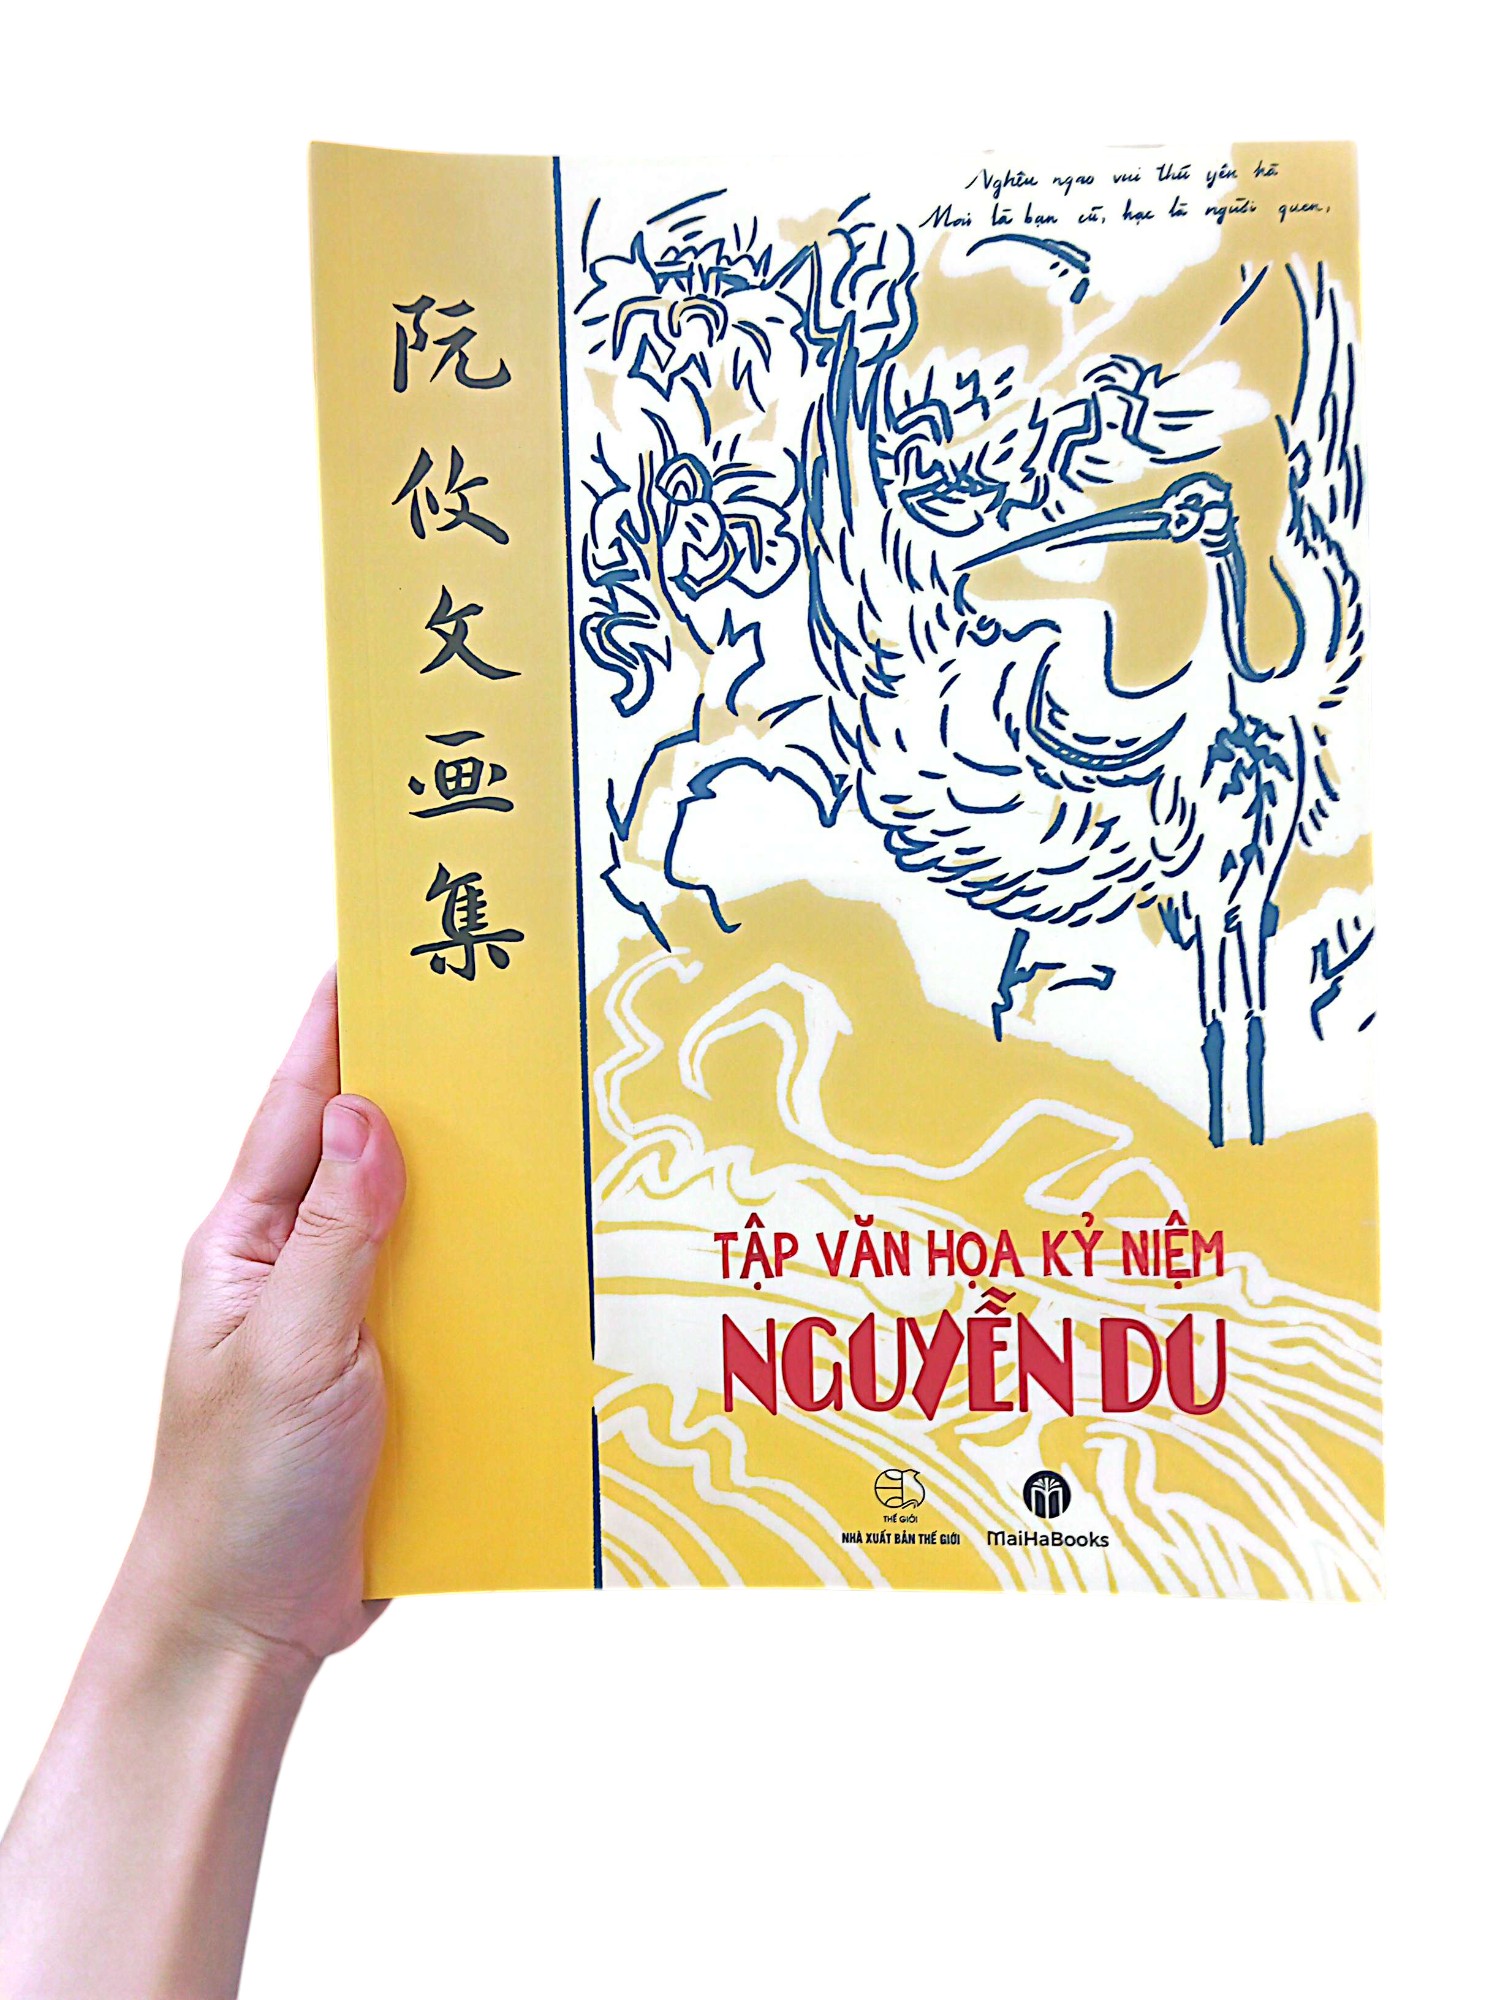 Nghêu ngao vui thú yên hà
Mai là bạn cũ, hạc là người quen,
阮攸文画集
TẬP VĂN HỌA KỶ NIỆM
NGUYỄN DU
THẾ GIỚI
NHÀ XUẤT BẢN THẾ GIỚI
MaiHaBooks